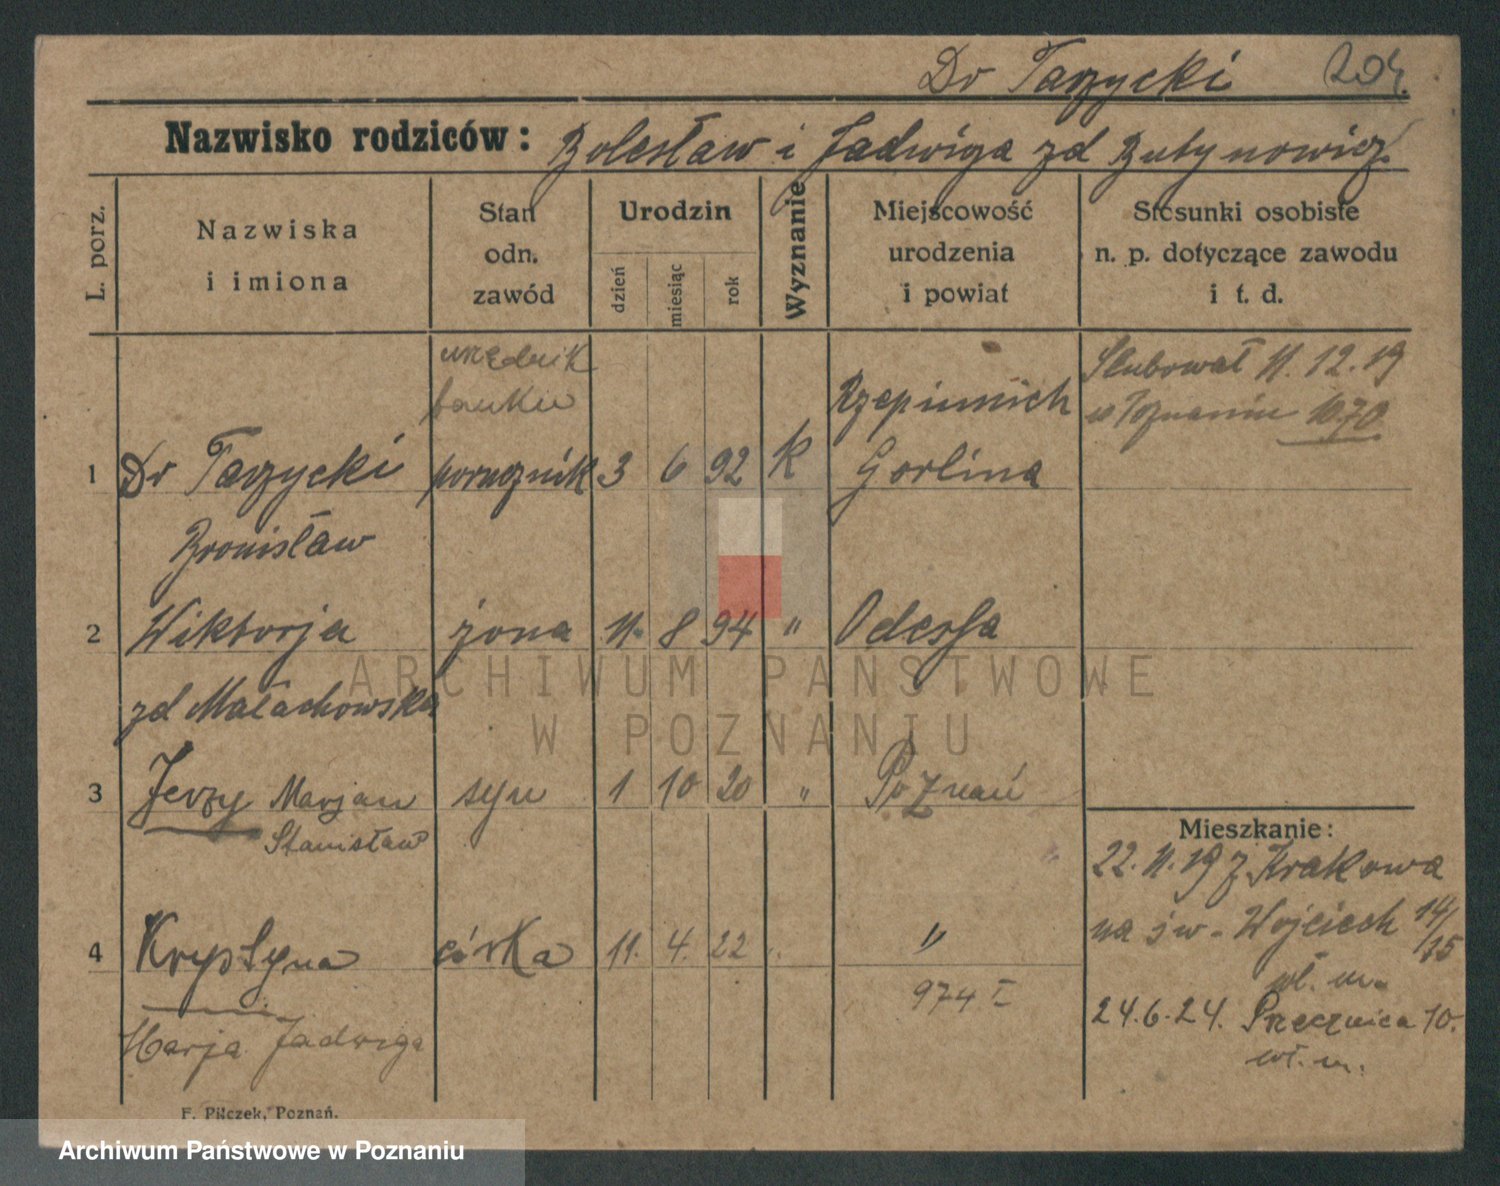 Dr Tarzycki 204.
Nazwisko rodziców: Bolesław i Jadwiga zd Butynowicz
L. porz.
Nazwiska
i imiona
Stan
odn.
zawód
Urodzin
dzień
miesiąc
rok
Wyznanie
Miejscowość
urodzenia
i powiat
Stosunki osobiste
n. p. dotyczące zawodu
i t. d.
urzędnik
banku
1 Dr Tarzycki porucznik 3 6 92 K
Bronisław
Rzepiennich
Gorlina
Slubował 11. 12. 19
w Poznaniu 1070
2 Wiktorja żona 11. 8 94 " Odessa
zd Małachowska
3 Jerzy Marjan syn 1 10 20 " Poznań
Stanisław
4 Krystyna córka 11. 4. 22 " "
Marja Jadwiga
974 I
Mieszkanie:
22. 11. 19 z Krakowa
na św. Wojciech 14/
/15
wł. m.
24. 6. 24. Przecznica 10.
wł. m.
F. Pilczek, Poznań.
ARCHIWUM PAŃSTWOWE
W POZNANIU
Archiwum Państwowe w Poznaniu